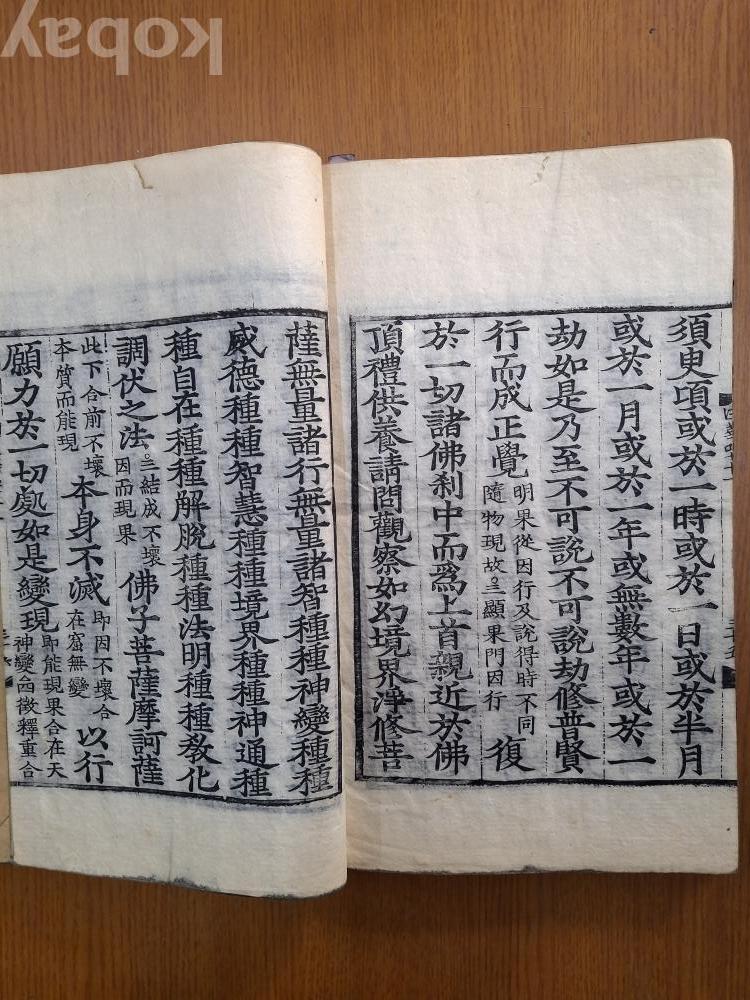 kobay
須臾頃或於一時或於一日或於半月
或於一月或於一年或無數年或於一
劫如是乃至不可說不可說劫修普賢
行而成正覺明果從因行及說得時不同隨物現故○三顯果門因行復
於一切諸佛刹中而爲上首親近於佛
頂禮供養請問觀察如幻境界淨修菩
薩無量諸行無量諸智種種神變種種
威德種種智慧種種境界種種神通種
種自在種種解脫種種法明種種教化
調伏之法○三結成不壞因而現果佛子菩薩摩訶薩
此下合前不壞本質而能現本身不滅即因不壞合在窟無變以行
願力於一切處如是變現即能現果合在天神變徵釋重合